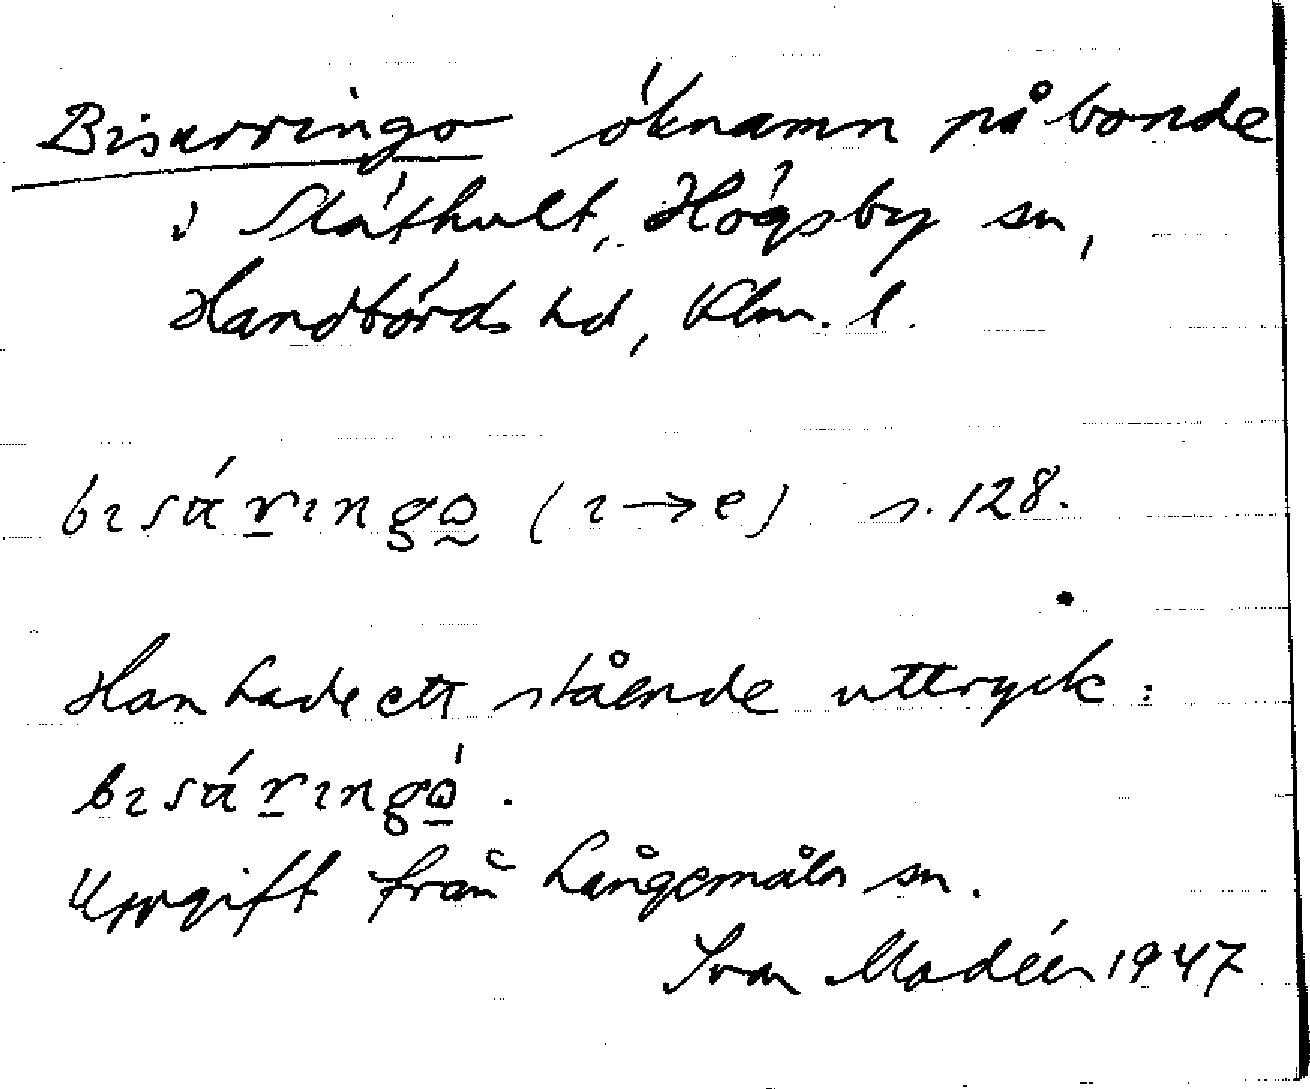 Bisarringo öknamn på bonde
i Slåthult, Högsby sn,
Handbörds hd, Klm. l.
bɩsáriŋgo (ɩ→e) s. 128.
Han hade ett stående uttryck:
bɩsáriŋgó.
Uppgift från Långemåla sn.
Ivar Modéer 1947